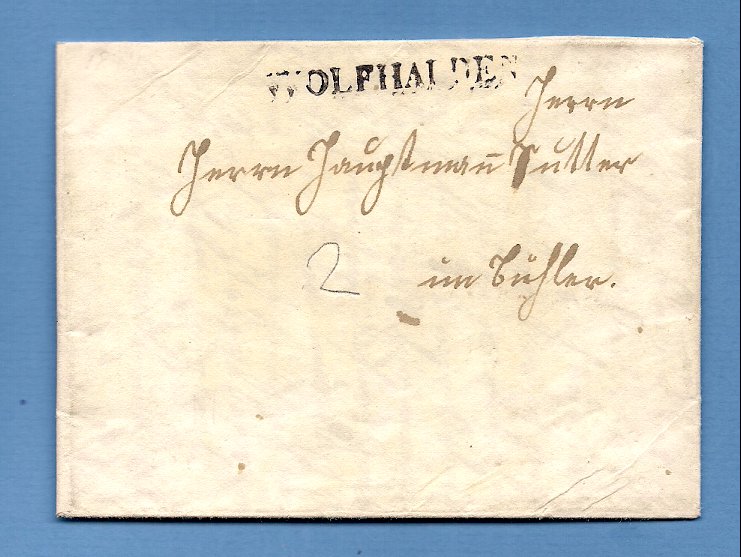 WOLFHALDEN
Herrn
Herrn Hauptmañ Sutter
2
im Bühler.